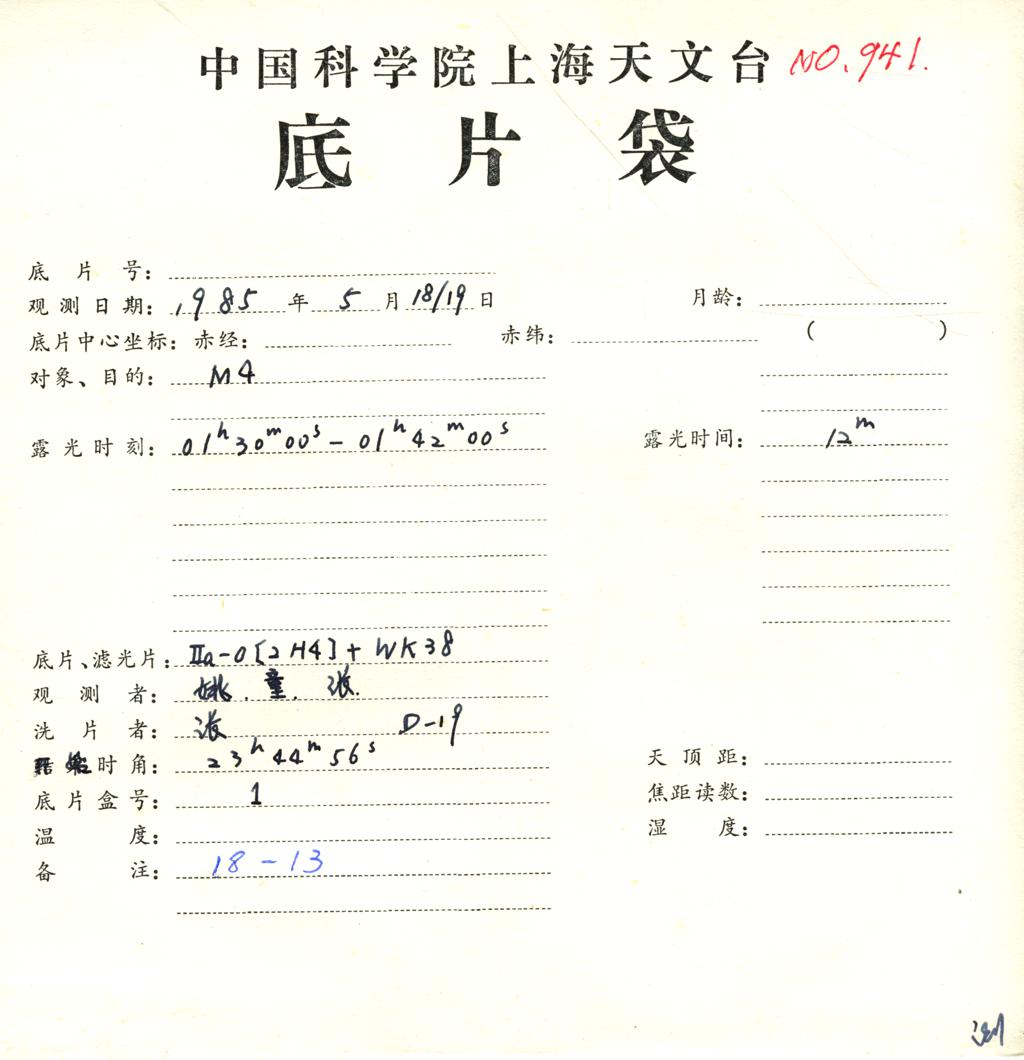 中国科学院上海天文台 NO.941.
底片袋
底片号:
观测日期: 1985年5月18/19日 月龄:
底片中心坐标: 赤经: 赤纬: ( )
对象、目的: M4
露光时刻: 01ʰ30ᵐ00ˢ-01ʰ42ᵐ00ˢ 露光时间: 12ᵐ
底片、滤光片: IIa-O[2H4]+WK38
观测者: 姚.童.张.
洗片者: 张 D-19
时角: 23ʰ44ᵐ56ˢ 天顶距:
底片盒号: 1 焦距读数:
温度: 湿度:
备注: 18-13